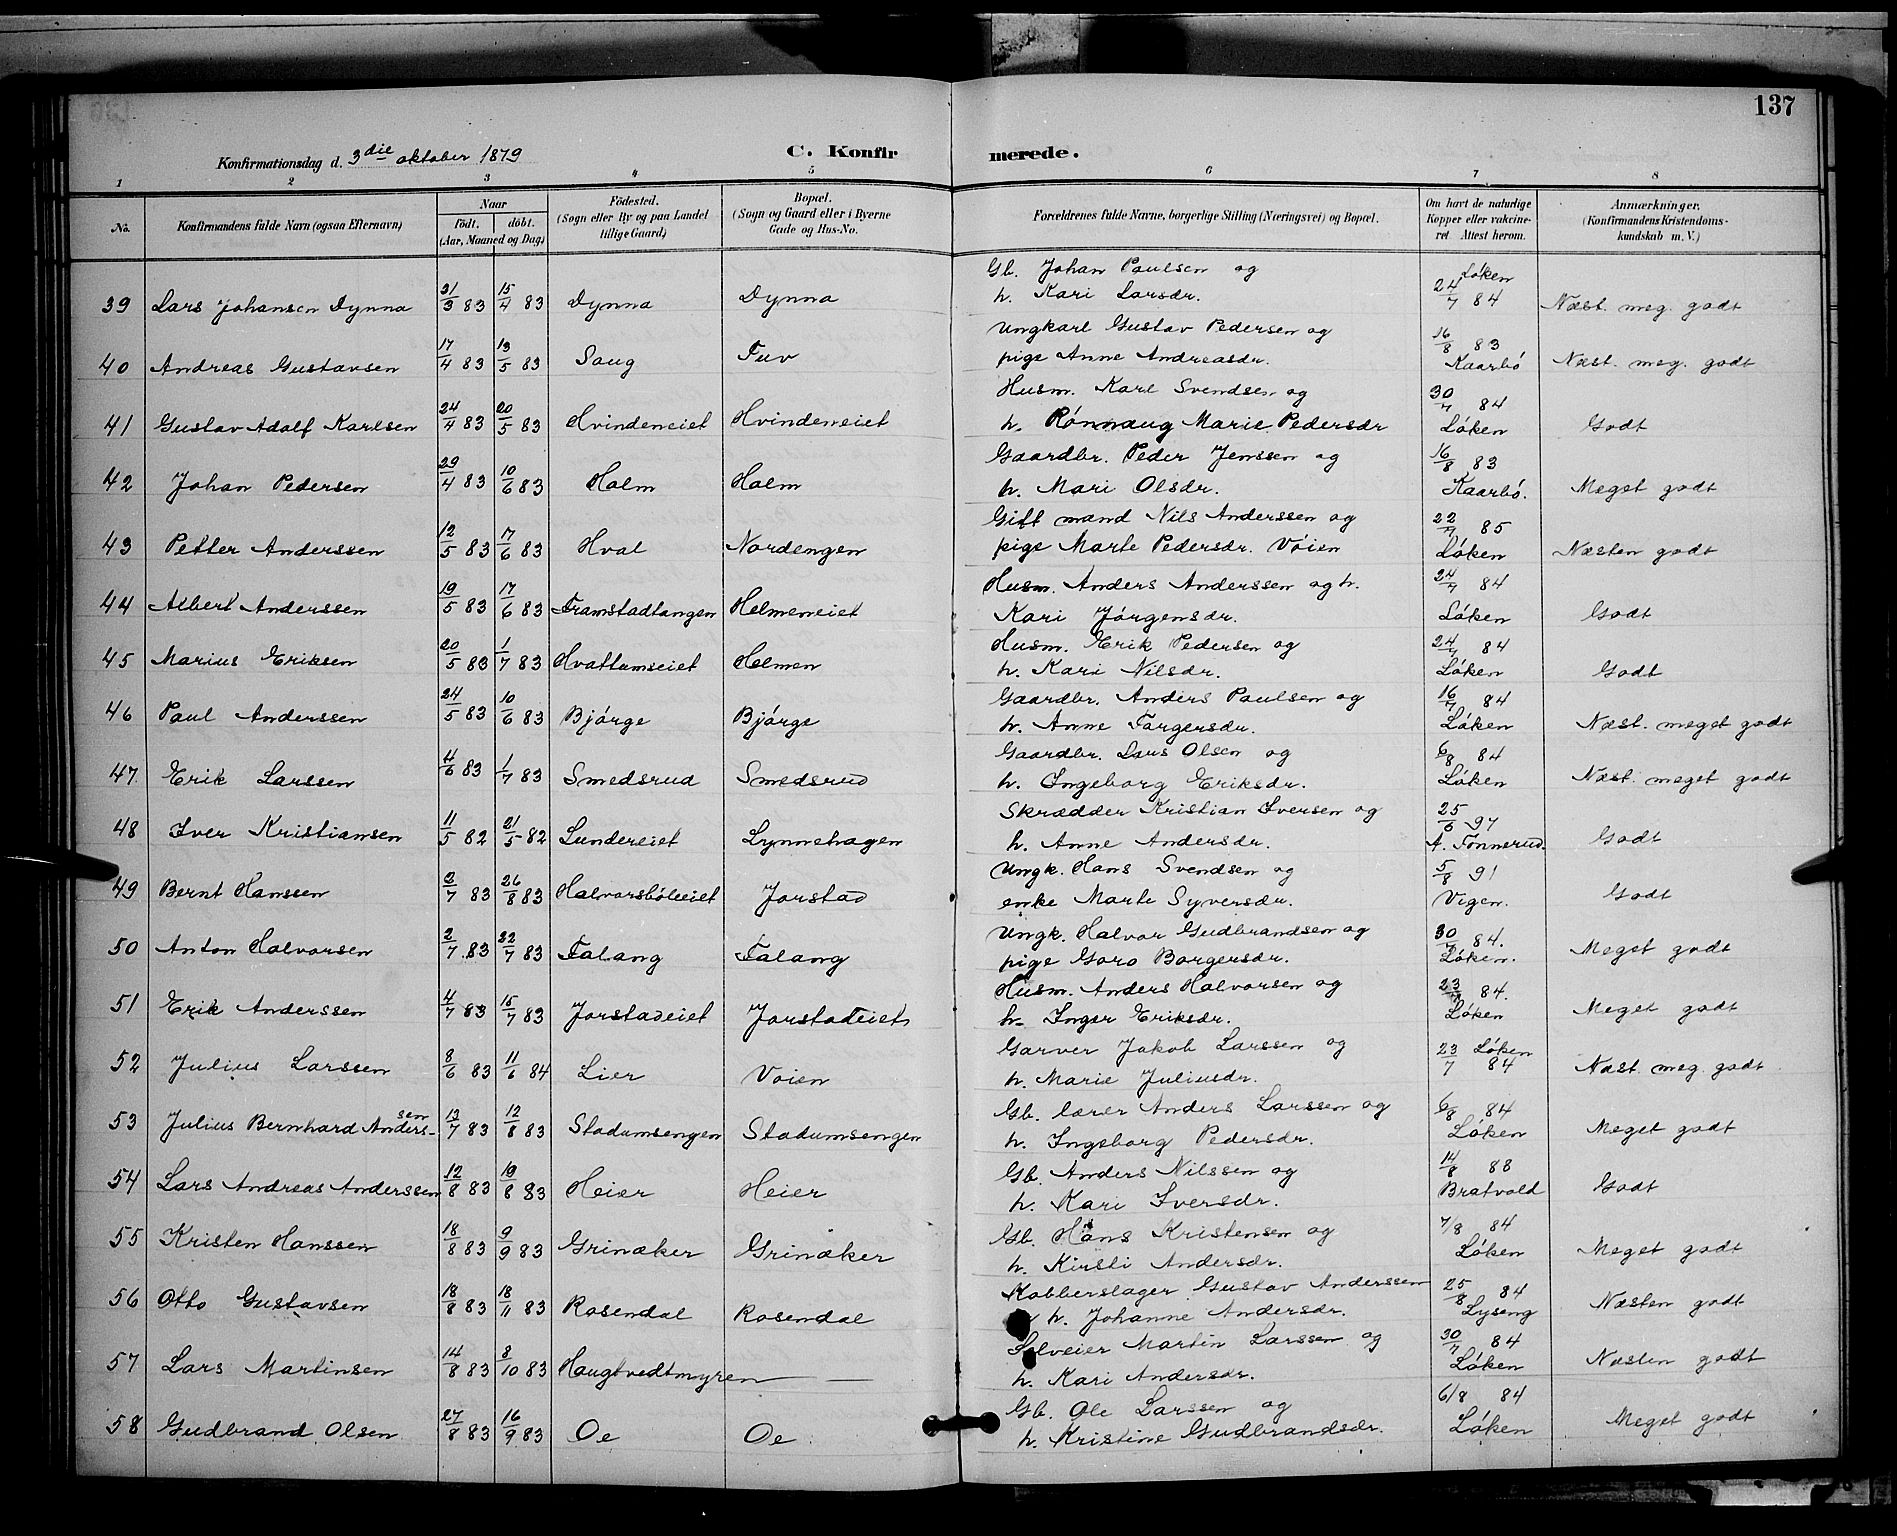 137
Konfirmationsdag d. 3die oktober 1879
C. Konfirmerede.
1 2 3 4 5 6 7 8
No. Konfirmandens fulde Navn (ogsaa Efternavn) Naar født. døbt. (Aar, Maaned og Dag) Födested. (Sogn eller By og paa Landet tillige Gaard) Bopæl. (Sogn og Gaard eller i Byerne Gade og Hus-No. Forældrenes fulde Navne, borgerlige Stilling (Næringsvei) og Bopæl. Om havt de naturlige Kopper eller vakcineret. Attest herom. Anmærkninger. (Konfirmandens Kristendomskundskab m. V.)
39 Lars Johansen Dynna 21/3 83 15/4 83 Dynna Dynna Gb. Johan Paulsen og h. Kari Larsdr. 24/7 84 Løken Næst. meg. godt
40 Andreas Gustavsen 17/4 83 13/5 83 Saug Tuv Ungkarl Gustav Pedersen og pige Anne Andreasdr. 16/8 83 Kaarbø Næst. meg. godt
41 Gustav Adolf Karlsen 24/4 83 20/5 83 Hvindeneiet Hvindeneiet Husm. Karl Svendsen og h. Rønnaug Marie Pedersdr 30/7 84 Løken Godt
42 Johan Pedersen 29/4 83 10/6 83 Halm Halm Gaardbr. Peder Jenssen og h. Mari Olsdr. 16/8 83 Kaarbø. Meget godt
43 Petter Anderssen 12/5 83 17/6 83 Hval Nordengen Gift mand Nils Anderssen og pige Marte Pedersdr. Vøien 22/7 85 Løken Næsten godt
44 Albert Anderssen 19/5 83 17/6 83 Framstadtangen Helmeneiet Husm. Anders Anderssen og h. Kari Jørgensdr. 24/7 84 Løken Godt
45 Marius Eriksen 20/5 83 1/7 83 Hvattumseiet Helmen Husm. Erik Pedersen og h. Kari Nilsdr. 24/7 84 Løken Godt
46 Paul Anderssen 24/5 83 10/6 83 Bjørge Bjørge Gaardbr. Anders Paulsen og h. Anne Torgersdr. 16/7 84 Løken Næst. meget godt
47. Erik Larssen 4/6 83 1/7 83 Smedsrud Smedsrud Gaardbr. Lars Olsen og h. Ingeborg Eriksdr. 6/8 84 Løken Næst. meget godt
48 Iver Kristiansen 11/5 82 21/5 82 Lundereiet Lynnehagen Skrædder Kristian Iversen og h. Anne Andersdr. 25/6 97 A. Tønnerud. Godt
49 Bernt Hanssen 2/7 83 26/8 83 Halvorsbøleeiet Jorstad Ungk. Hans Svendsen og enke Marte Syversdr. 5/8 91 Vigen. Godt
50 Anton Halvorsen 2/7 83 22/7 83 Falang Falang Ungk. Halvor Gudbrandsen og pige Goro Borgersdr. 30/7 84. Løken. Meget godt
51 Erik Anderssen 4/7 83 15/7 83 Jorstadeiet Jorstadeiet Husm. Anders Halvorsen og h. Inger Eriksdr. 23/7 84. Løken Meget godt
52 Julius Larssen 8/6 83 11/6 84 Lier Vøien Garver Jakob Larssen og h. Marie Juliusdr. 23/7 84 Løken Næst. meg. godt
53 Julius Bernhard Anderssen 13/7 83 12/8 83 Stadumsengen Stadumsengen Gb. lærer Anders Larssen og h. Ingeborg Pedersdr. 6/8 84 Løken Meget godt
54 Lars Andreas Anderssen 12/8 83 19/8 83 Heier Heier Gb. Anders Nilssen og h. Kari Iversdr. 14/8 88 Bratvold Godt
55 Kristen Hanssen 18/8 83 9/9 83 Grinaker Grinaker Gb. Hans Kristensen og h. Kirsti Andersdr. 7/8 84 Løken Meget godt
56 Otto Gustavsen 18/8 83 18/11 83 Rosendal Rosendal Kobberslager Gustav Anderssen h. Johanne Andersdr. 25/8 84 Lyseng Næsten godt
57 Lars Martinsen 14/8 83 8/10 83 Haugtvedtmyren — — Selveier Martin Larssen og h. Kari Andersdr. 30/7 84 Løken Næsten godt
58 Gudbrand Olsen 27/8 83 16/9 83 Oe Oe Gb. Ole Larssen og h. Kristine Gudbrandsdr. 6/8 84 Løken Meget godt